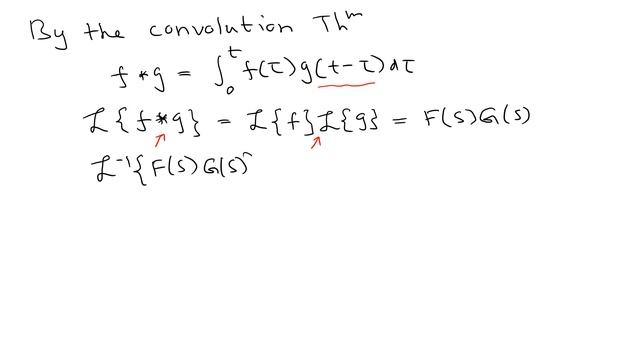 By the convolution Thm
f * g = ∫₀ᵗ f(τ) g(t-τ) dτ
ℒ{f*g} = ℒ{f}ℒ{g} = F(s)G(s)
ℒ⁻¹{F(s)G(s)